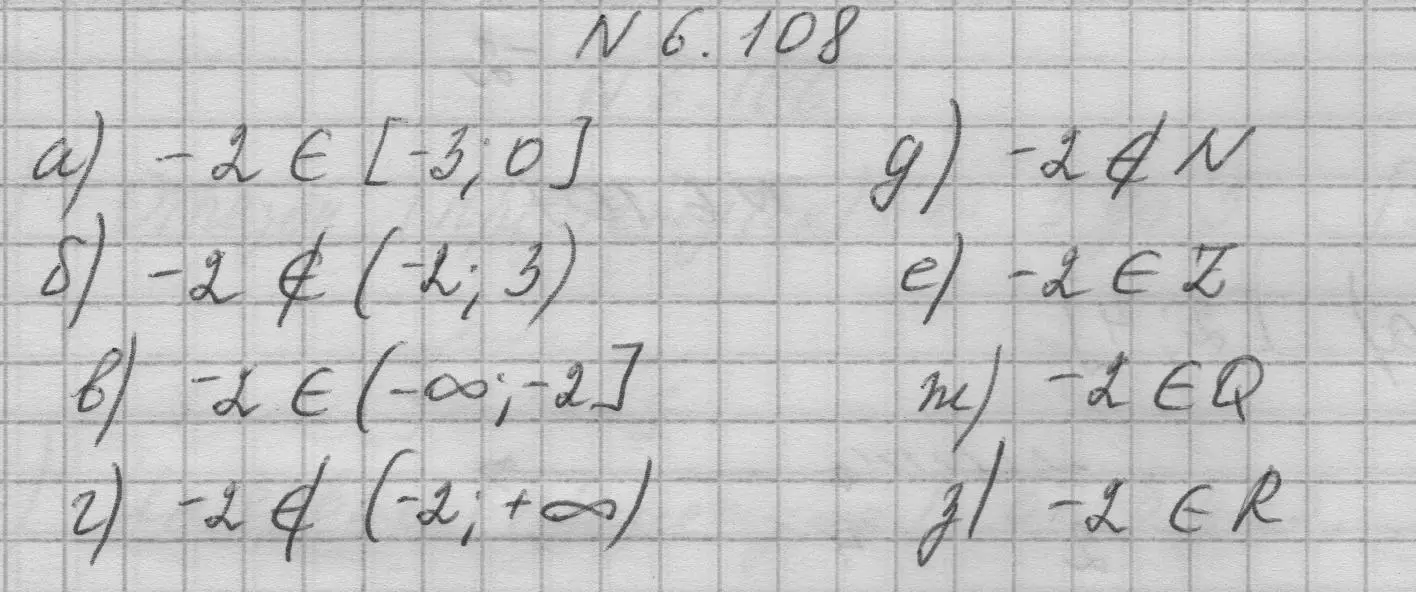 N 6.108
а) -2 ∈ [-3; 0]
б) -2 ∉ (-2; 3)
в) -2 ∈ (-∞; -2]
г) -2 ∉ (-2; +∞)
д) -2 ∉ N
е) -2 ∈ Z
ж) -2 ∈ Q
з) -2 ∈ R